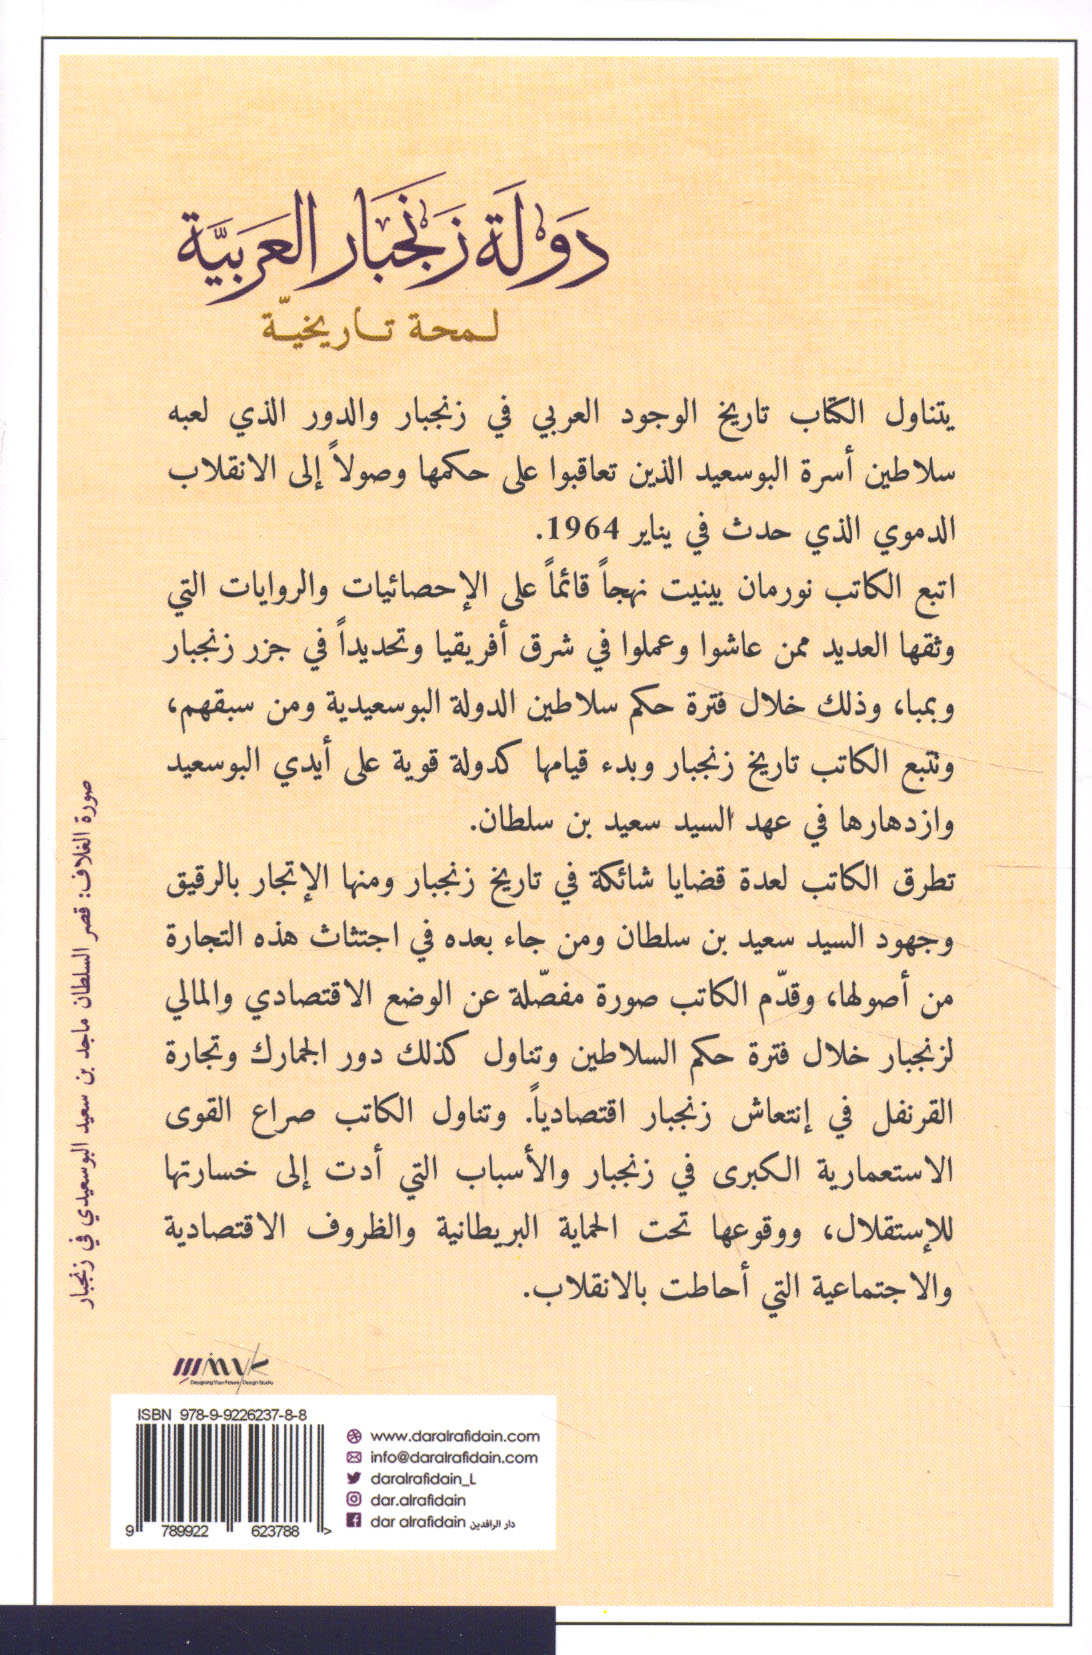 دَوْلَة زَنْجْبَار العَرَبيَّة
لـمحة تـاريخيّـة
يتناول الكتاب تاريخ الوجود العربي في زنجبار والدور الذي لعبه
سلاطين أسرة البوسعيد الذين تعاقبوا على حكمها وصولاً إلى الانقلاب
الدموي الذي حدث في يناير 1964.
اتبع الكاتب نورمان بينيت نهجاً قائماً على الإحصائيات والروايات التي
وثقها العديد ممن عاشوا وعملوا في شرق أفريقيا وتحديداً في جزر زنجبار
وبمبا، وذلك خلال فترة حكم سلاطين الدولة البوسعيدية ومن سبقهم،
وتتبع الكاتب تاريخ زنجبار وبدء قيامها كدولة قوية على أيدي البوسعيد
وازدهارها في عهد السيد سعيد بن سلطان.
تطرق الكاتب لعدة قضايا شائكة في تاريخ زنجبار ومنها الإتجار بالرقيق
وجهود السيد سعيد بن سلطان ومن جاء بعده في اجتثاث هذه التجارة
من أصولها، وقدّم الكاتب صورة مفصّلة عن الوضع الاقتصادي والمالي
لزنجبار خلال فترة حكم السلاطين وتناول كذلك دور الجمارك وتجارة
القرنفل في إنتعاش زنجبار اقتصادياً. وتناول الكاتب صراع القوى
الاستعمارية الكبرى في زنجبار والأسباب التي أدت إلى خسارتها
للإستقلال، ووقوعها تحت الحماية البريطانية والظروف الاقتصادية
والاجتماعية التي أحاطت بالانقلاب.
صورة الغلاف: قصر السلطان ماجد بن سعيد البوسعيدي في زنجبار
Designing Your Future Design Studio
ISBN 978-9-9226237-8-8
9 789922 623788 >
www.daralrafidain.com
info@daralrafidain.com
daralrafidain_L
dar.alrafidain
dar alrafidain دار الرافدين